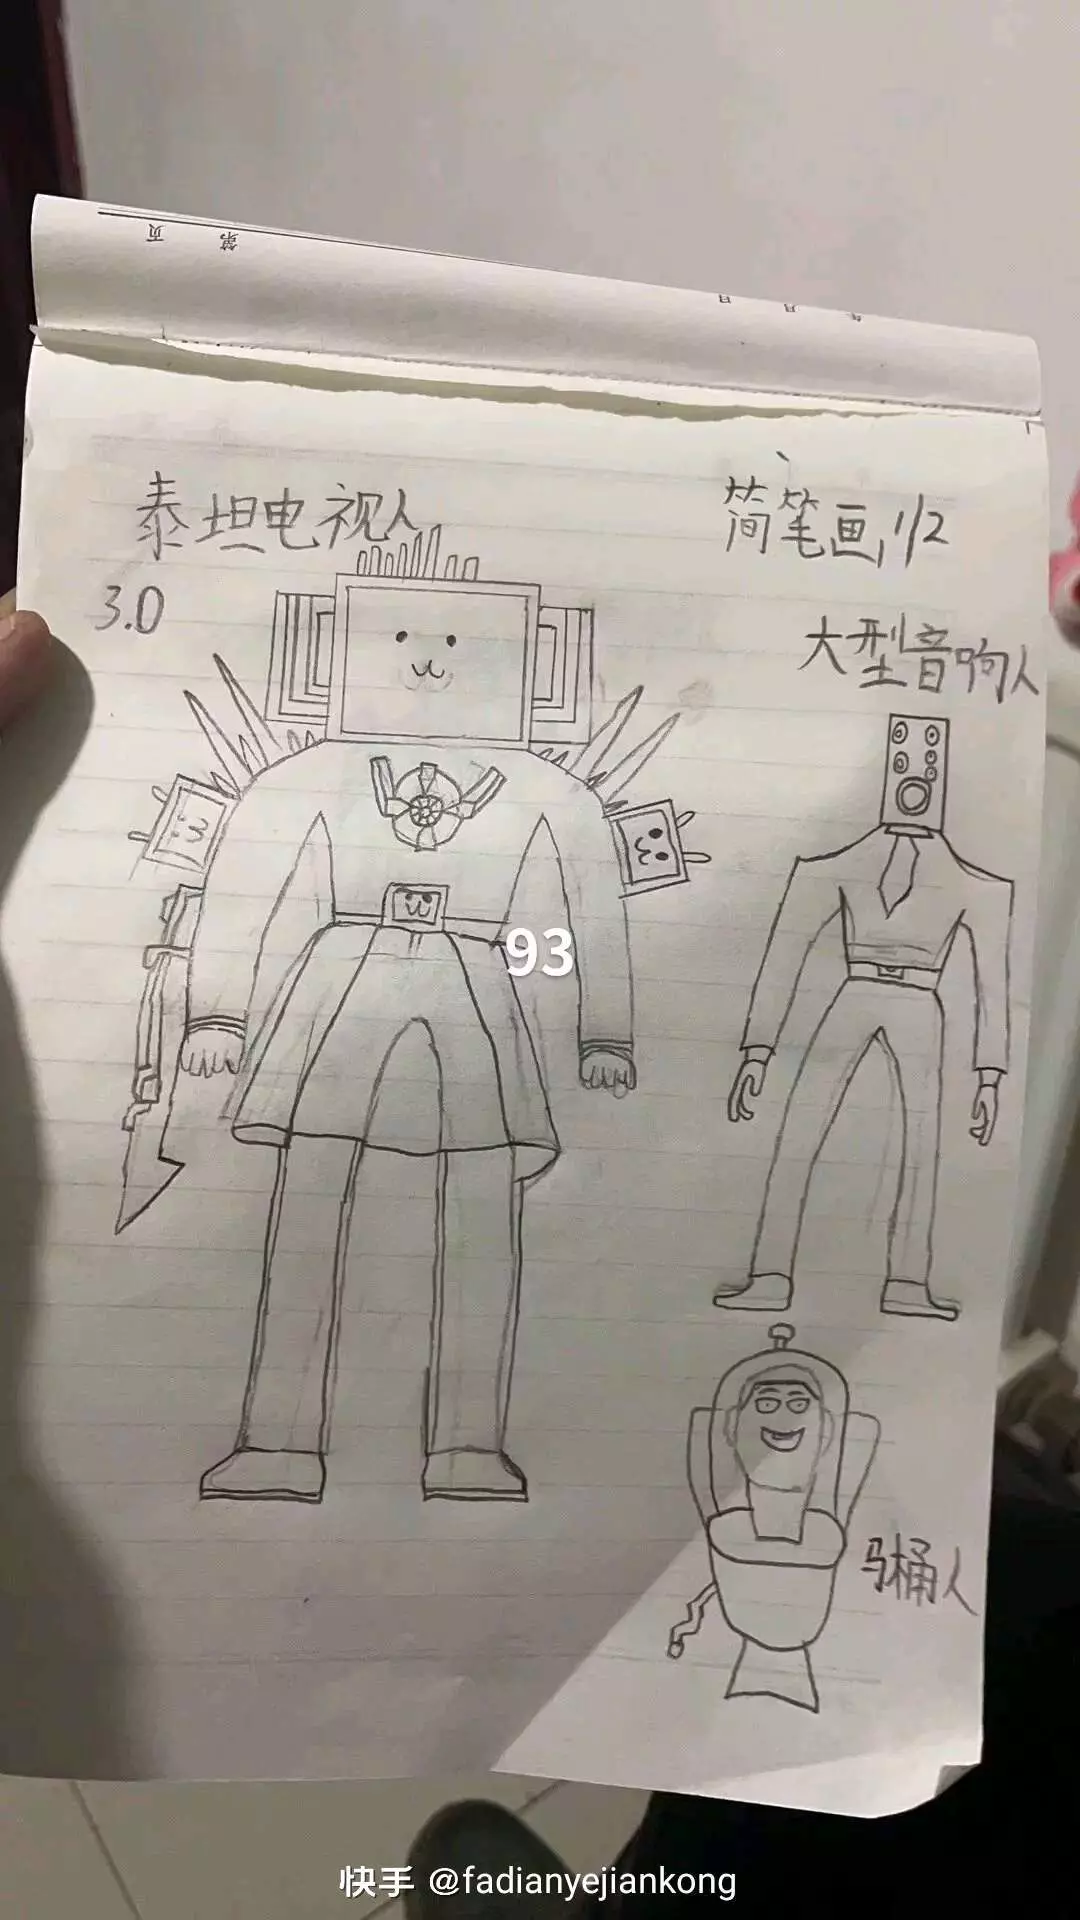 第 页
年 月 日
泰坦电视人
3.0
简笔画,1/2
大型音响人
93
马桶人
快手 @fadianyejiankong